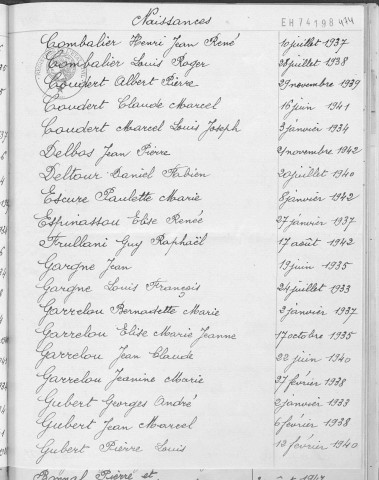 Naissances
EH 74198 474
Combalier Henri Jean René 10 juillet 1937
Combalier Louis Roger 28 juillet 1938
Coudert Albert Pierre 29 novembre 1939
Coudert Claude Marcel 16 juin 1941
Coudert Marcel Louis Joseph 3 janvier 1934
Delbos Jean Pierre 2 novembre 1942
Deltour Daniel Fabien 20 juillet 1940
Escure Paulette Marie 8 janvier 1942
Espinassou Elise Renée 27 janvier 1937
Frullani Guy Raphaël 17 août 1942
Gargne Jean 19 juin 1935
Gargne Louis François 24 juillet 1933
Garrelou Bernadette Marie 2 janvier 1937
Garrelou Elise Marie Jeanne 17 octobre 1935
Garrelou Jean Claude 22 juin 1940
Garrelou Jeanine Marie 27 février 1938
Gubert Georges André 2 janvier 1933
Gubert Jean Marcel 6 février 1938
Gubert Pierre Louis 12 février 1940
Pierre et